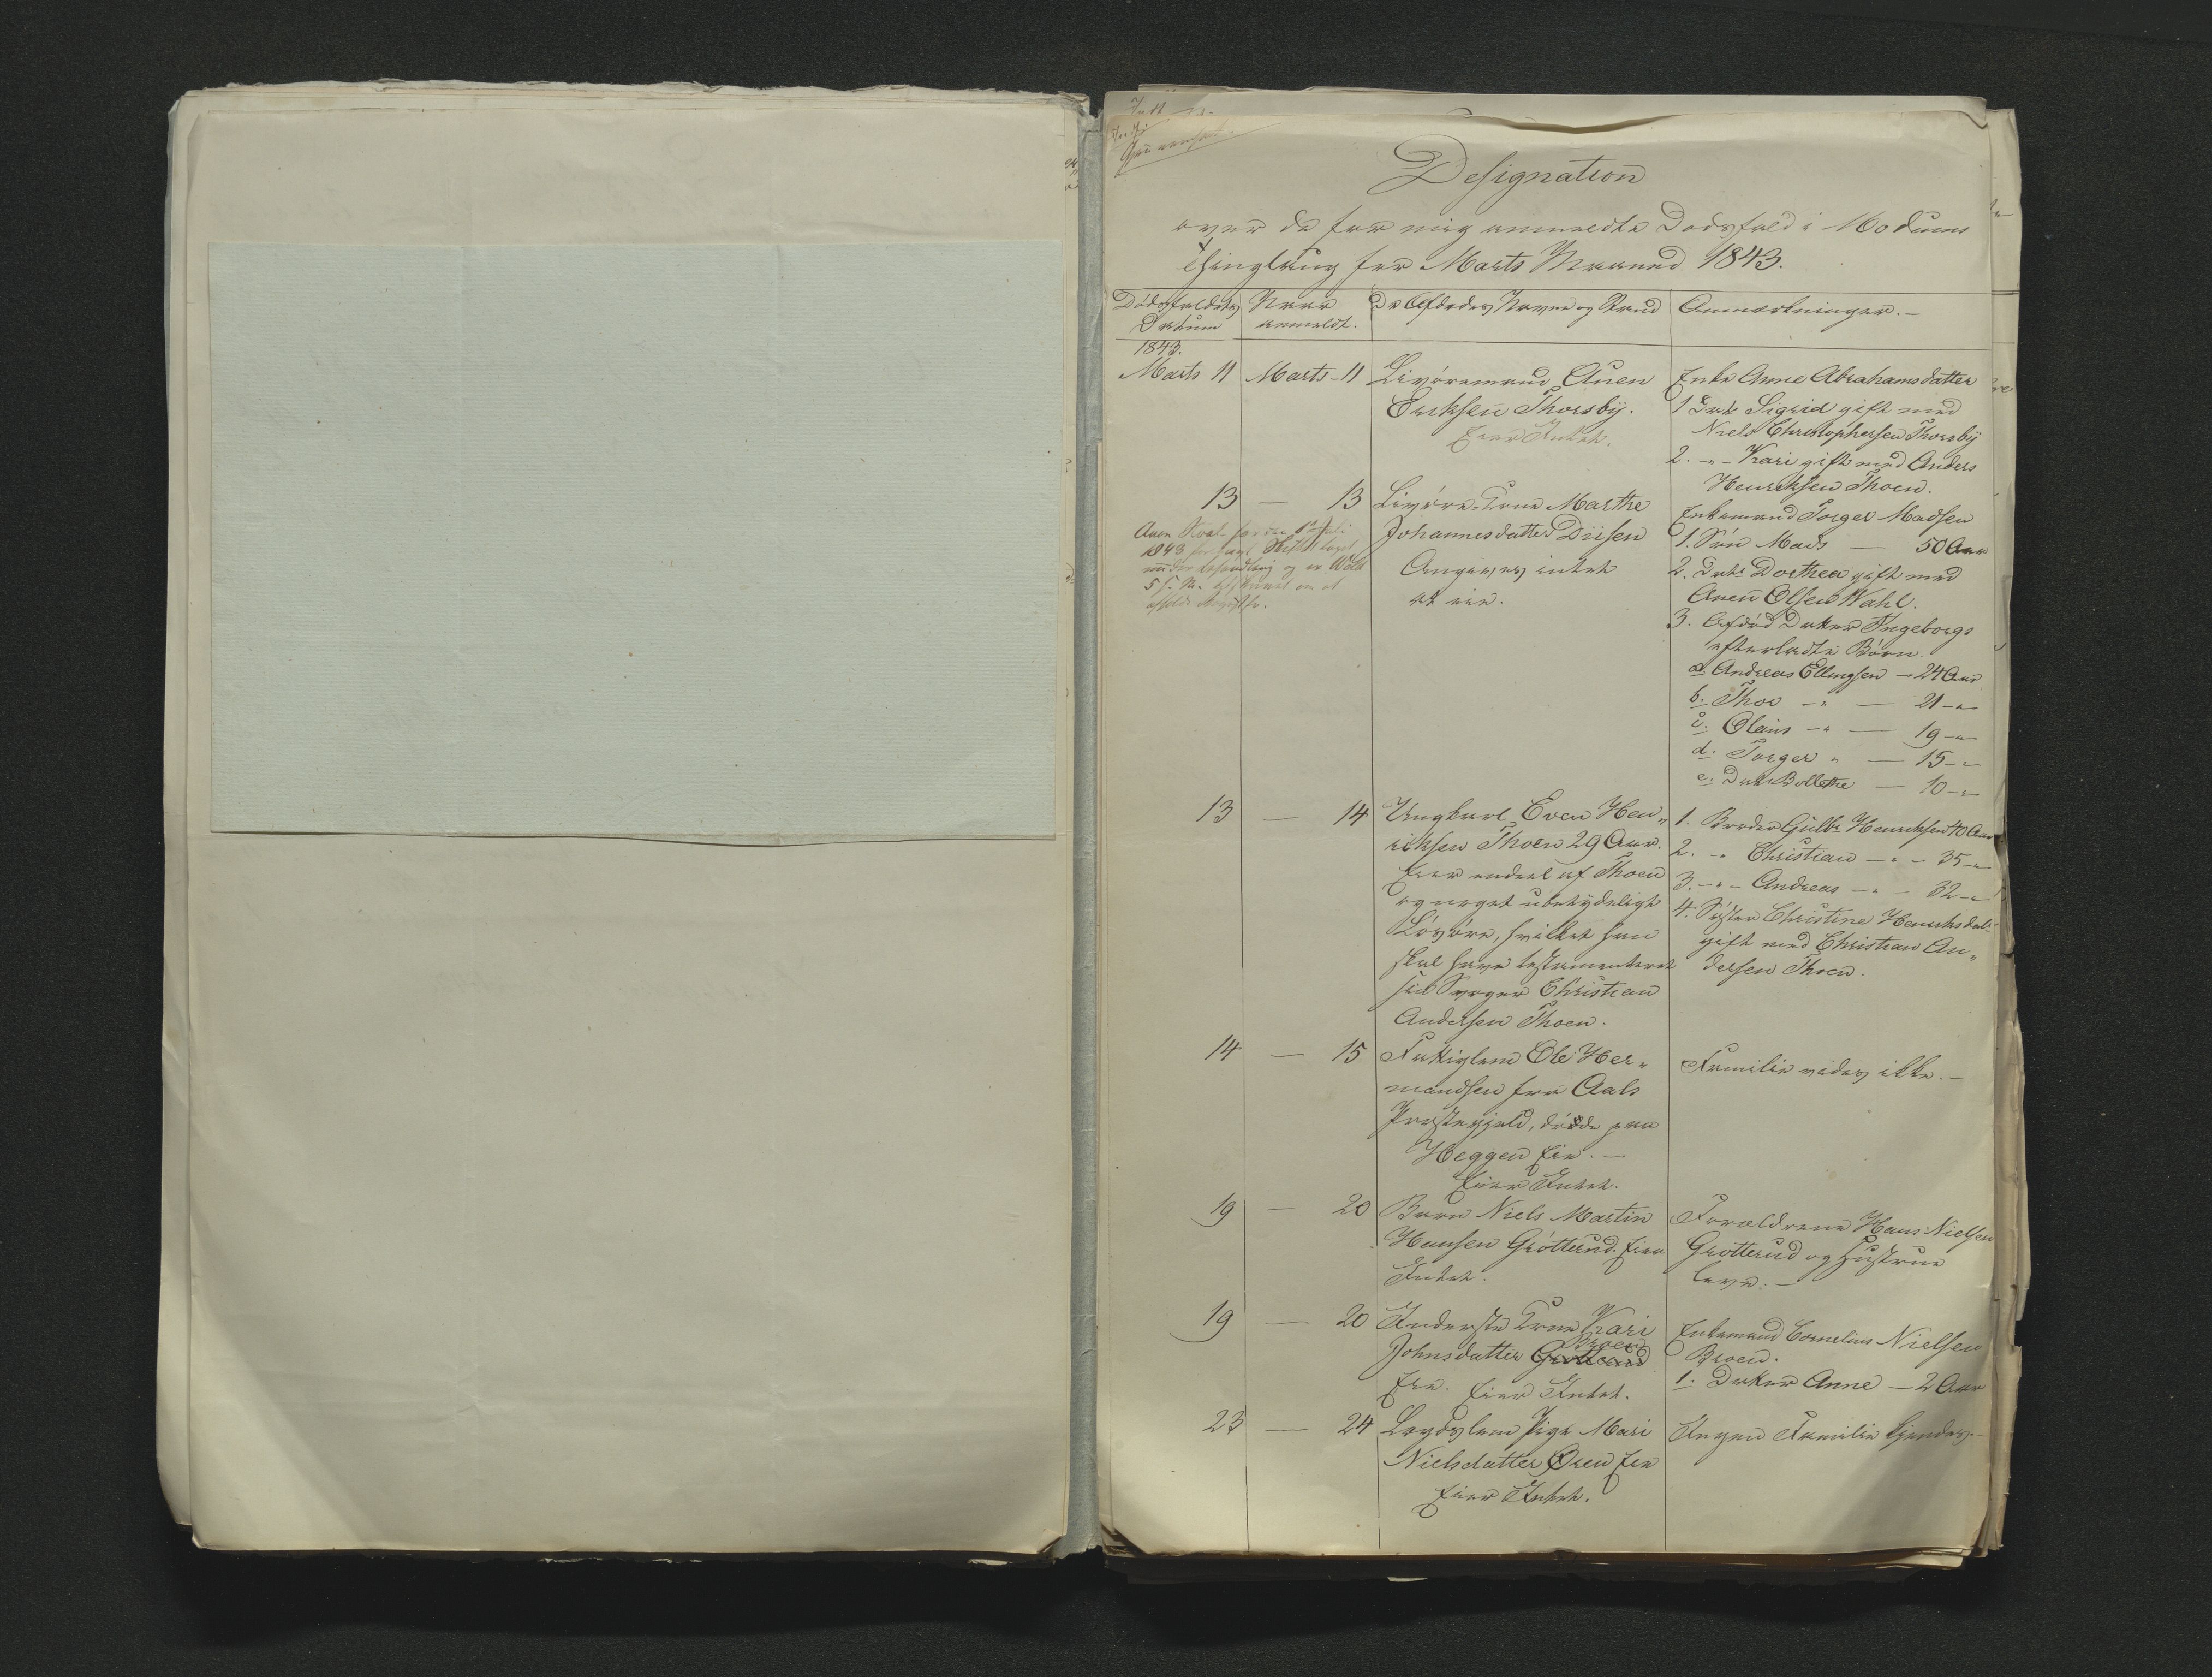 Designation
over de for mig anmeldte Dødsfald i Modums
Thinglaug for Marts Maaned 1843.
Dødsfaldets Datum
Naar anmeldt.
De Afdødes Navne og Stand
Anmærkninger.-
1843.
Marts 11
Marts-11
Livøremand Auen
Ericksen Thorsby.
Eier Intet.
Enke Anne Abrahamsdatter
1 Datr Sigrid gift med
Niels Christophersen Thorsby
2. -"- Kari gift med Anders
Henriksen Thoen.
13 — 13
Livøre Kone Marthe
Johannesdatter Diisen
Angives intet
at eie.
1843
Enkemand Torger Madsen
1. Søn Mads — 50 Aar
2. Datr Dorthea gift med
Auen Olsen Wahl.
3. Afdød Datter Ingeborgs
efterladte Børn
a. Andreas Ellingsen — 24 Aar
b. Thor -"- — 21 -"-
c. Olaus -"- — 19 -"-
d. Torger " — 15 -"-
e. Datr Bollethe — 10 -"-
13 — 14
Ungkarl Even Hen„
riksen Thoen 29 Aar.
Eier endeel af Thoen
og noget ubetydeligt
Løsøre, hvilket han
skal have testamenteret
sin Svoger Christian
Andersen Thoen.
1. Broder Gulbr Henriksen 40 Aar
2. -" Christian -"- 35 -"-
3. -"- Andreas -"- 32 -"-
4. Søster Christine Henriksdatr
gift med Christian An„
dersen Thoen.
14 — 15
Fattiglem Ole Her„
mandsen fra Aals
Præstegjeld, døde paa
Heggen Eie. —
Eier Intet.
Familie vides ikke. —
19 — 20
Barn Niels Martin
Hansen Grøtterud. Eier
Intet.
Forældrene Hans Nielsen
Grøtterud og Hustrue
leve. —
19 — 20
Inderste Kone Kari
Broen
Johnsdatter Grøtterud
Eie. Eier Intet.
Enkemand Cornelius Nielsen
Broen.
1. Datter Anne — 2 Aar
23 — 24
Lægdslem Pige Mari
Nielsdatter Øren Eie
Eier Intet.
Ingen Familie kjendes.